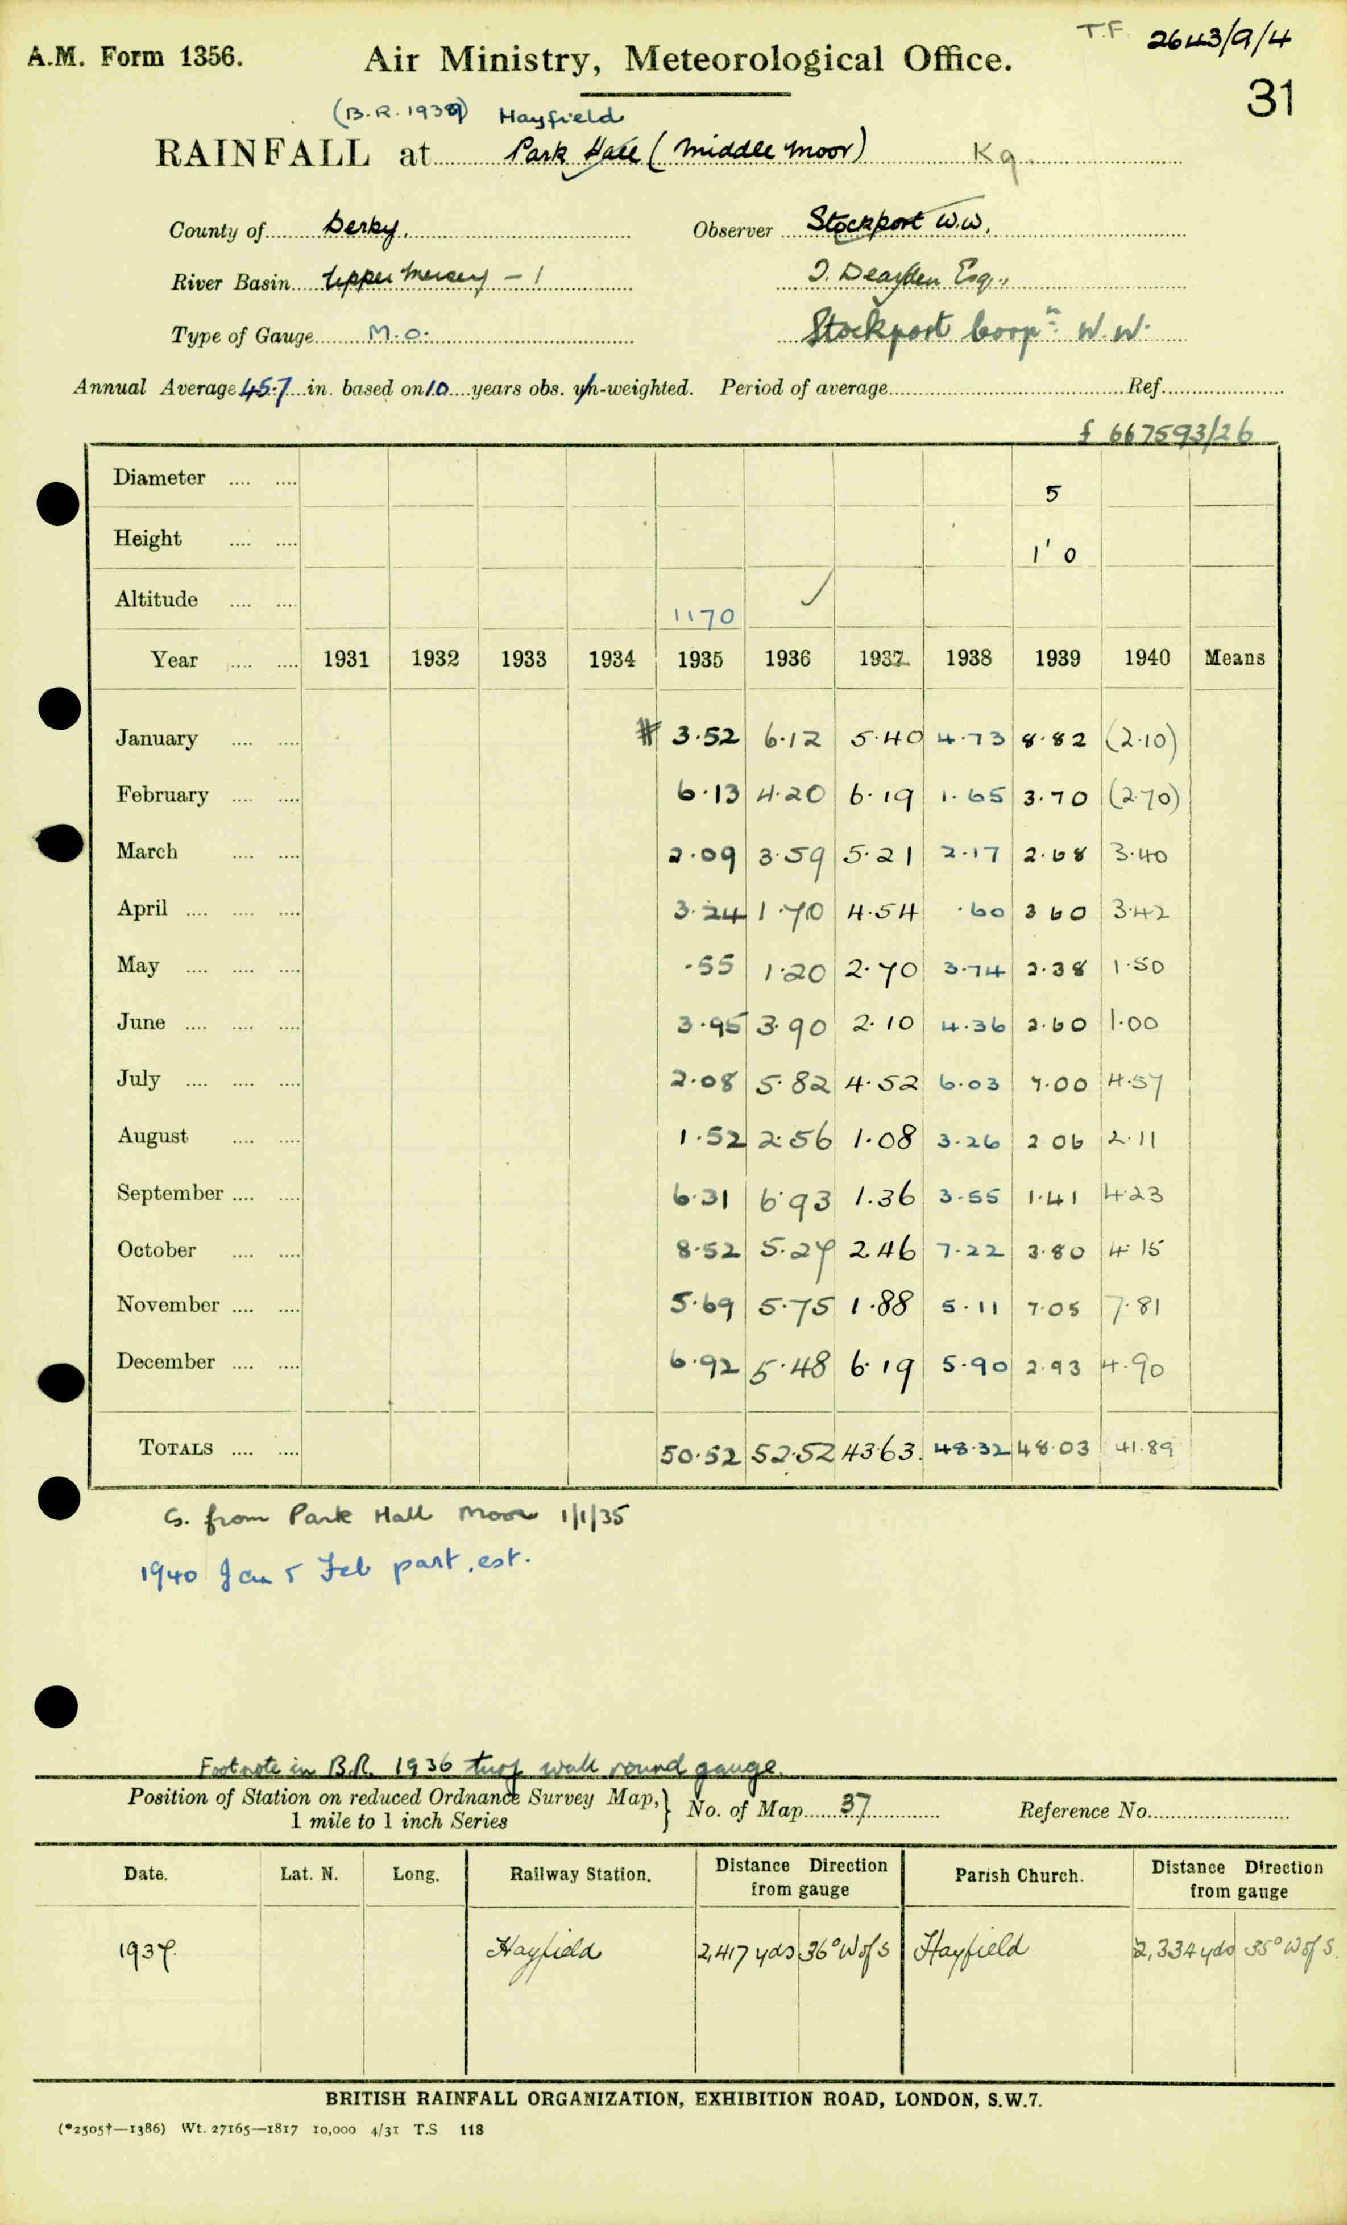 T.F. 2643/9/4
A.M. Form 1356. Air Ministry, Meteorological Office.
31
(B.R. 1939) Hayfield
RAINFALL at Park Hall (Middle Moor) Kg.
County of Derby. Observer Stockport W.W.
River Basin Upper Mersey - 1 J. Dearden Esq.,
Type of Gauge M.O. Stockport Corpn. W.W.
Annual Average 45.7 in. based on 10 years obs. un-weighted. Period of average Ref.
f 667593/26
Diameter 5
Height 1' 0
Altitude 1170 ✓
Year 1931 1932 1933 1934 1935 1936 1937 1938 1939 1940 Means
January # 3.52 6.12 5.40 4.73 8.82 (2.10)
February 6.13 4.20 6.19 1.65 3.70 (2.70)
March 2.09 3.59 5.21 2.17 2.68 3.40
April 3.24 1.70 4.54 .60 3 60 3.42
May .55 1.20 2.70 3.74 2.38 1.50
June 3.95 3.90 2.10 4.36 2.60 1.00
July 2.08 5.82 4.52 6.03 7.00 4.57
August 1.52 2.56 1.08 3.26 2 06 2.11
September 6.31 6.93 1.36 3.55 1.41 4.23
October 8.52 5.27 2.46 7.22 3.80 4.15
November 5.69 5.75 1.88 5.11 7.05 7.81
December 6.92 5.48 6.19 5.90 2.93 4.90
TOTALS 50.52 52.52 43.63. 48.32 48.03 41.89
G. from Park Hall Moor 1/1/35
1940 Jan & Feb part. est.
Footnote in B.R. 1936 turf wall round gauge.
Position of Station on reduced Ordnance Survey Map, } No. of Map 37 Reference No.
1 mile to 1 inch Series
Date. Lat. N. Long. Railway Station. Distance Direction from gauge Parish Church. Distance Direction from gauge
1937. Hayfield 2,417 yds 36° W of S Hayfield 2,334 yds 35° W of S.
BRITISH RAINFALL ORGANIZATION, EXHIBITION ROAD, LONDON, S.W.7.
(*2505†—1386) Wt. 27165—1817 10,000 4/31 T.S 118